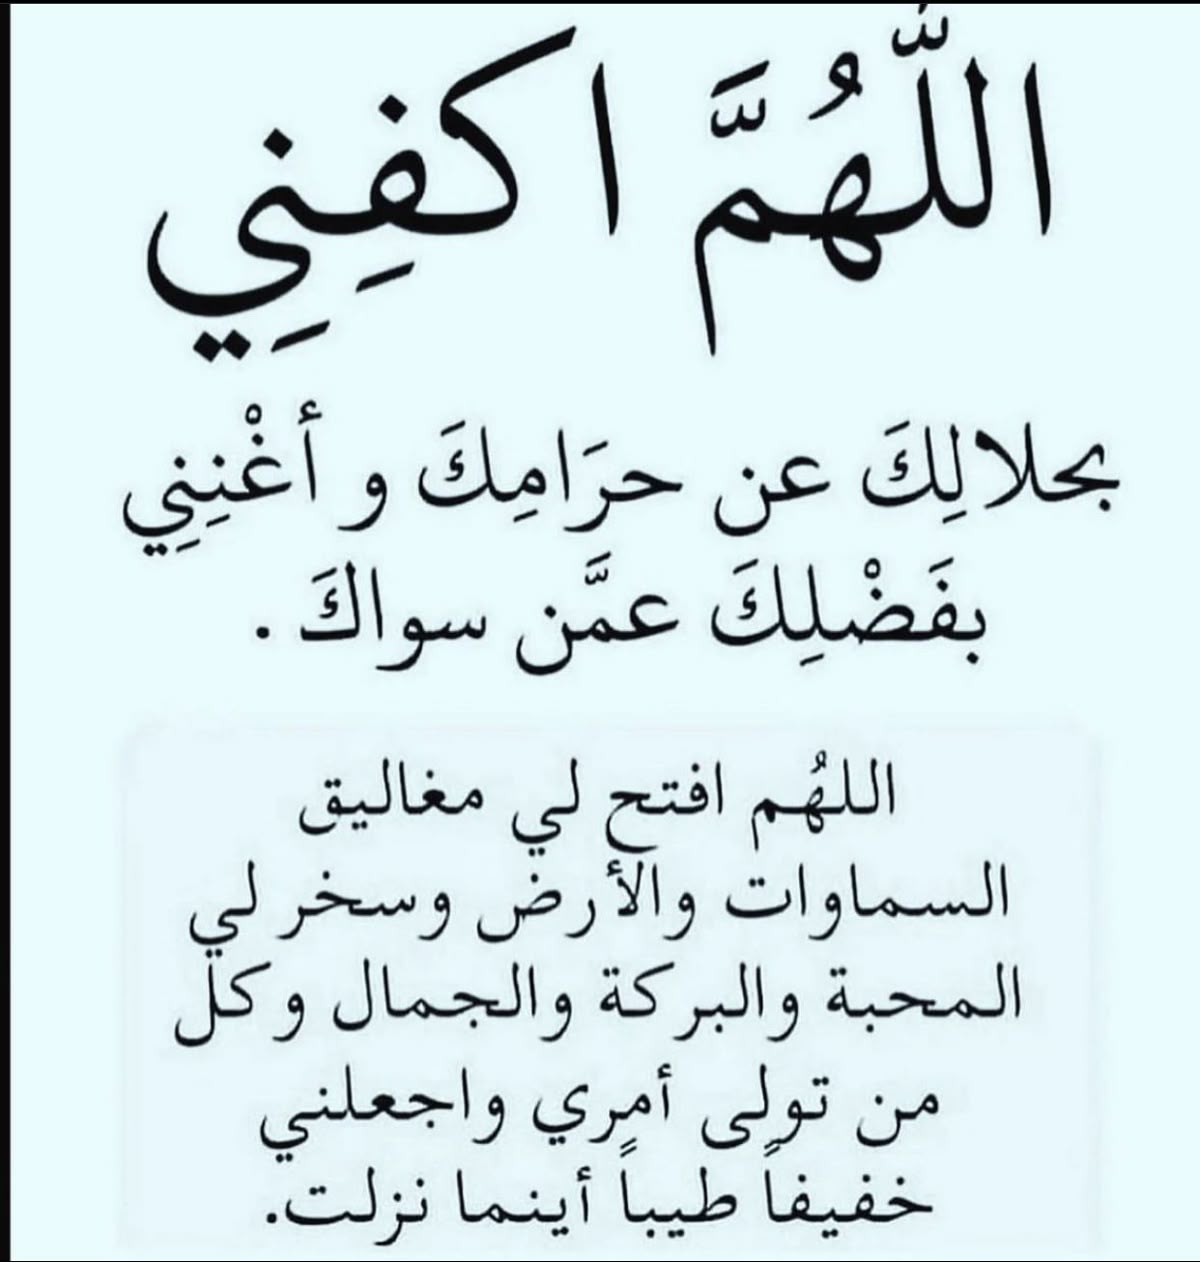 اللَّهُمَّ اكفِنِي
بحلالِكَ عن حرَامِكَ و أغْنِنِي
بفَضْلِكَ عمَّن سواكَ .
اللهُم افتح لي مغاليق
السماوات والأرض وسخر لي
المحبة والبركة والجمال وكل
من تولى أمري واجعلني
خفيفاً طيباً أينما نزلت.